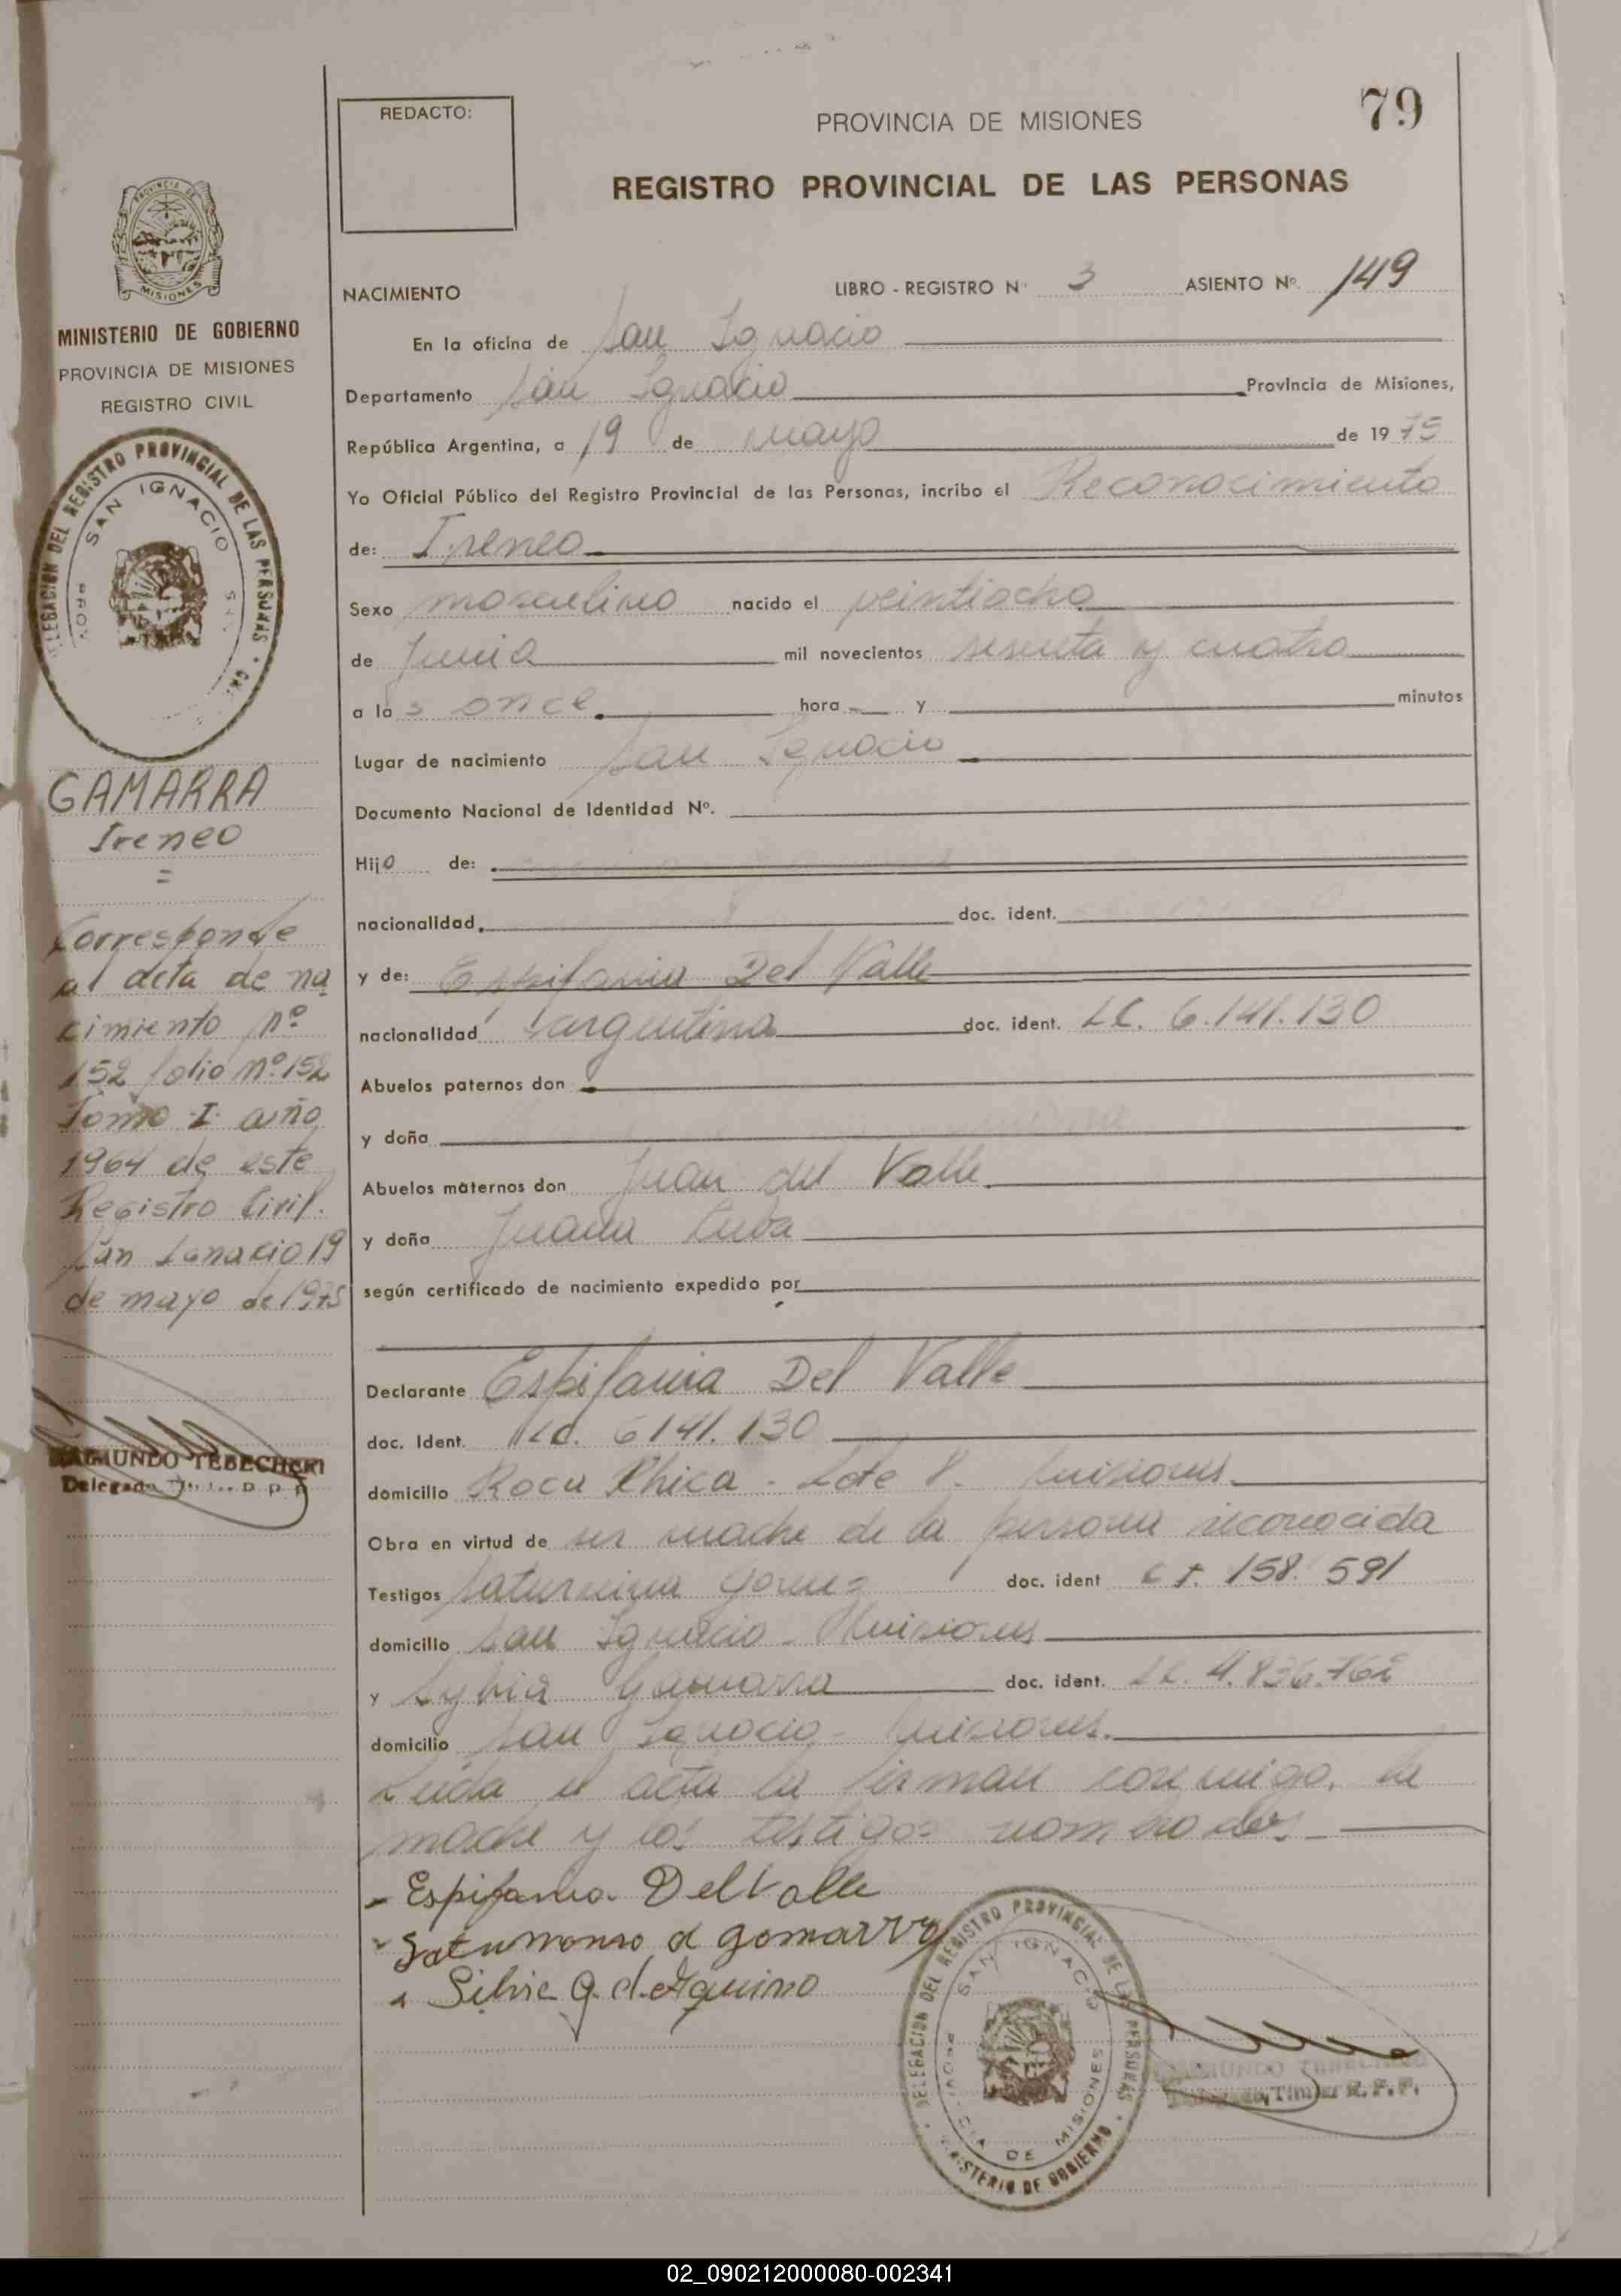 REDACTO:
PROVINCIA DE MISIONES
79
REGISTRO PROVINCIAL DE LAS PERSONAS
NACIMIENTO
LIBRO - REGISTRO Nº 3 ASIENTO Nº 149
En la oficina de San Ignacio
Departamento San Ignacio Provincia de Misiones,
República Argentina, a 19 de mayo de 1975
Yo Oficial Público del Registro Provincial de las Personas, incribo el Reconocimiento
de: Ireneo
Sexo masculino nacido el veintiocho
de Junio mil novecientos sesenta y cuatro
a las once hora y minutos
Lugar de nacimiento San Ignacio
Documento Nacional de Identidad Nº.
Hijo de:
nacionalidad doc. ident.
y de: Espifania Del Valle
nacionalidad argentina doc. ident. LC. 6.141.130
Abuelos paternos don
y doña
Abuelos maternos don Juan del Valle
y doña Juana
según certificado de nacimiento expedido por
Declarante Espifania Del Valle
doc. Ident. LC. 6141.130
domicilio Roca Chica - Lote 8. Misiones
Obra en virtud de ser madre de la persona reconocida
Testigos Saturnina Gomez doc. ident 158.591
domicilio San Ignacio - Misiones
y Sylvia Gamarra doc. ident. LC. 4.836.762
domicilio San Ignacio - Misiones.
Leida el acta la firman conmigo, la
madre y los testigos nombrados
- Espifania Del Valle
d gomarra
Silvia G. d. Aquino
MISIONES
MINISTERIO DE GOBIERNO
PROVINCIA DE MISIONES
REGISTRO CIVIL
DELEGACION DEL REGISTRO PROVINCIAL DE LAS PERSONAS
SAN IGNACIO
GAMARRA
Ireneo
=
Corresponde
al acta de na
cimiento nº
152 folio nº 152
Tomo I año
1964 de este
Registro Civil.
San Ignacio 19
de mayo de 1975
RAIMUNDO TEBECHERI
Delegado
DELEGACION DEL REGISTRO PROVINCIAL DE LAS PERSONAS
MINISTERIO DE GOBIERNO
SAN IGNACIO
PROVINCIA DE MISIONES
02_090212000080-002341